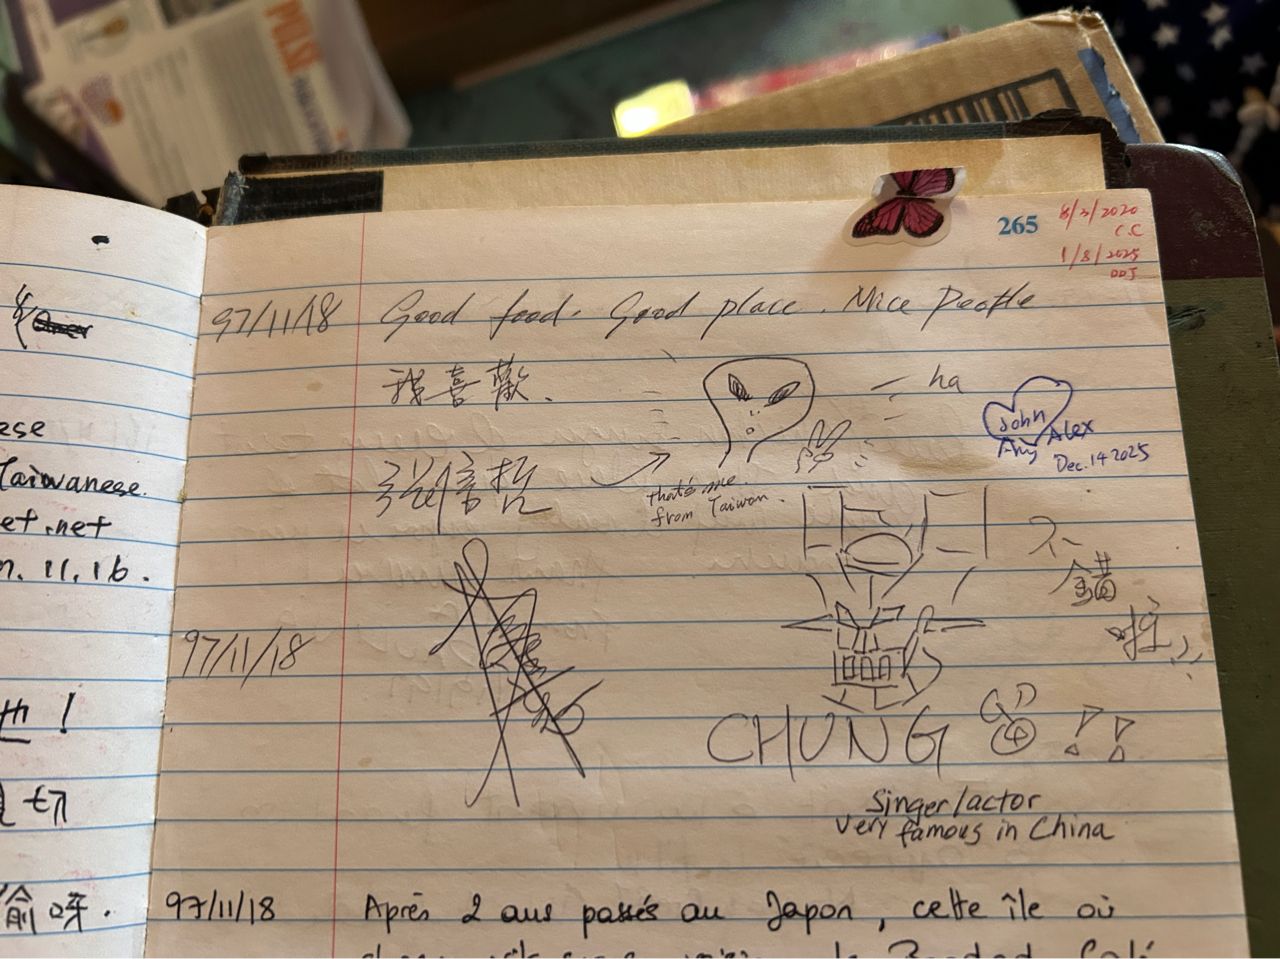 265
8/3/2020
C.C
1/8/2025
DDJ
97/11/18 Good food. Good place. Nice People
我喜歡.
信哲
that's me.
from Taiwan.
ha
John
Amy Alex
Dec. 14 2025
不
錯
啦
97/11/18
CHUNG
Singer/actor
very famous in China
97/11/18 Après 2 ans passés au Japon, cette île où
ese
Taiwanese.
et.net
11.16.
也!
切
偷呀.